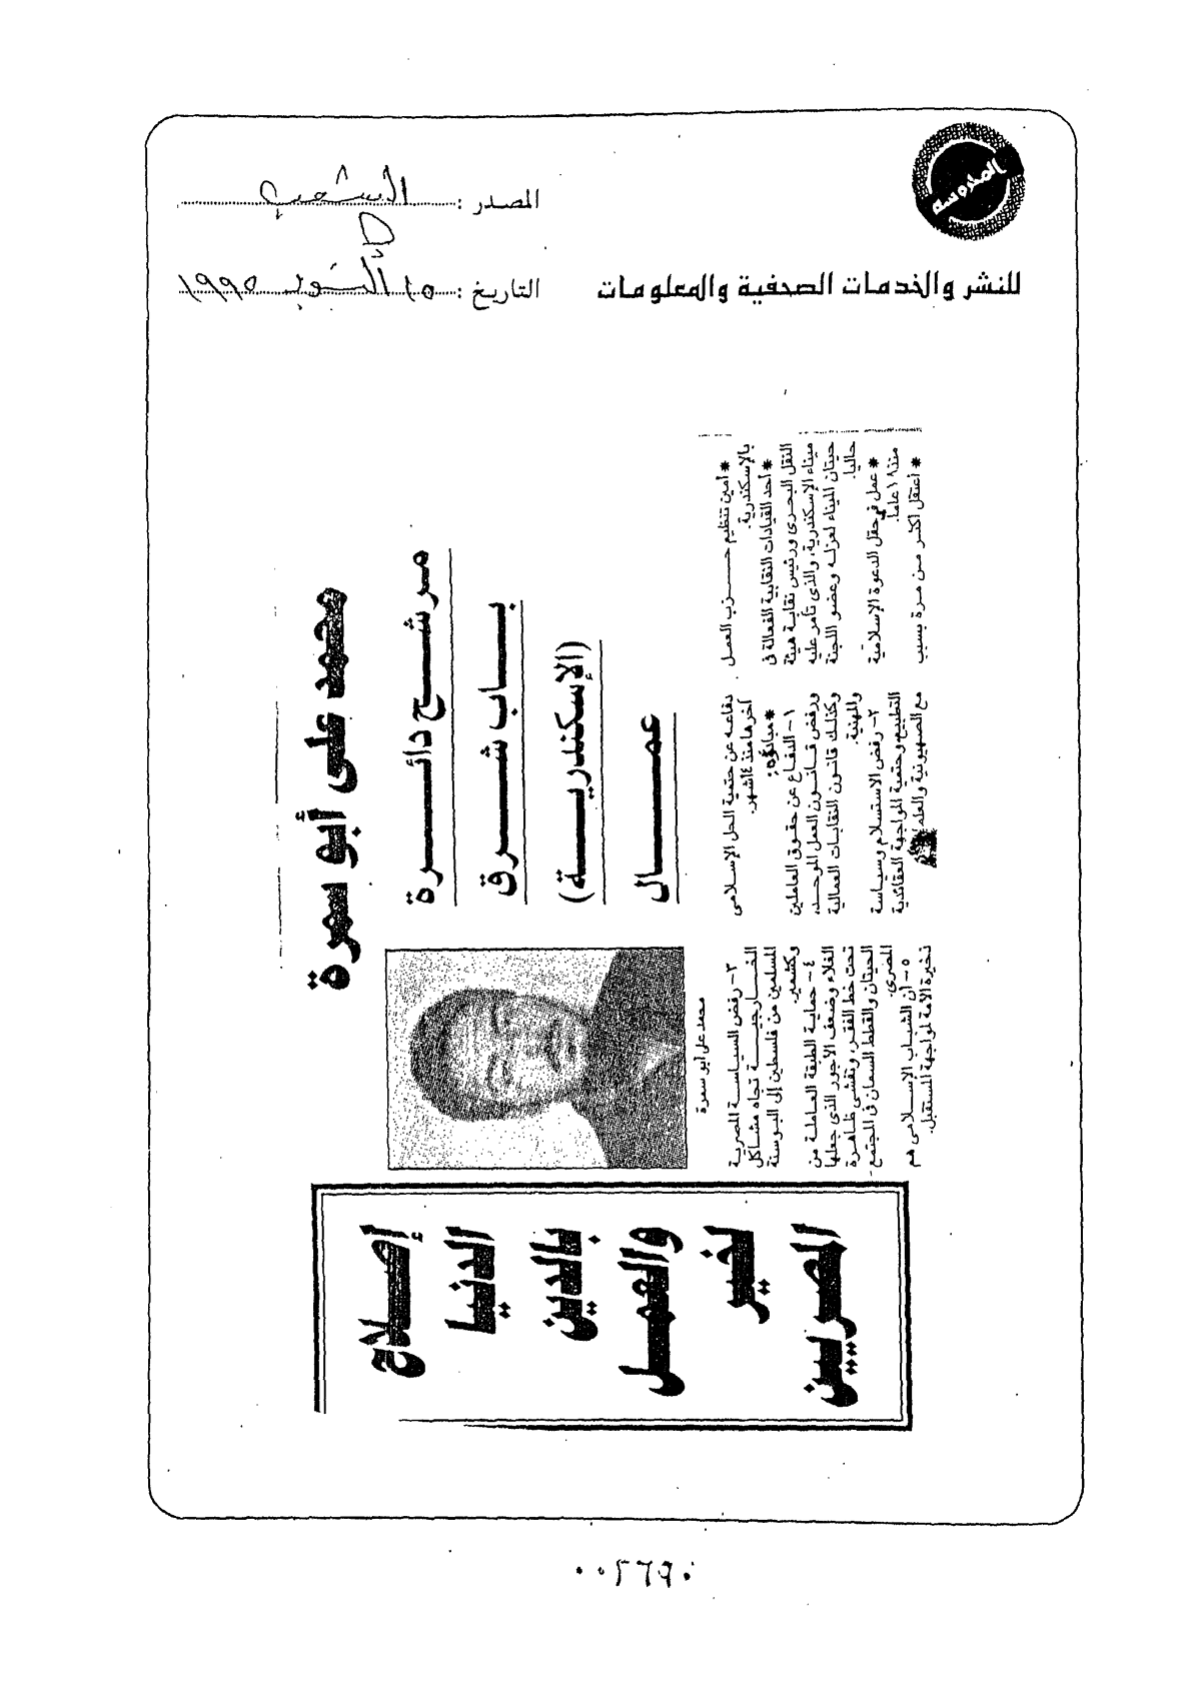 المحروسة
للنشر والخدمات الصحفية والمعلومات
المصدر : الشعب
التاريخ : ١٥ أكتوبر ١٩٩٥
محمد على أبو سمرة
مرشح دائرة
باب شرق
(الإسكندرية)
عمال
* أمين تنظيم حزب العمل
بالإسكندرية.
* أحد القيادات النقابية الفعالة فى
النقل البحرى ورئيس نقابة هيئة
ميناء الإسكندرية، والذى تآمر عليه
حيتان الميناء لعزله وعضو اللجنة
حاليا.
* عمل فى حقل الدعوة الإسلامية
منذ ١٨ عاما.
* اعتقل أكثر من مرة بسبب
دفاعه عن حتمية الحل الإسلامى
آخرها منذ ١٤ شهر.
* مبادؤه:
١- الدفاع عن حقوق العاملين
ورفض قانون العمل الموحد،
وكذلك قانون النقابات العمالية
والمهنية.
٢- رفض الاستسلام وسياسة
التطبيع وحتمية المواجهة العقائدية
مع الصهيونية
٣- رفض السياسة المصرية
الخارجية تجاه مشاكل
المسلمين من فلسطين إلى البوسنة
وكشمير.
٤- حماية الطبقة العاملة من
الغلاء وضعف الأجور الذى جعلها
تحت خط الفقر، وتفشى ظاهرة
الحيتان والقطط السمان فى المجتمع
المصرى.
٥- أن الشباب الإسلامى هم
ذخيرة الأمة لمواجهة المستقبل.
محمد على أبو سمرة
إصلاح
الدنيا
بالدين
والعمل
لخير
المصريين
٠٠٢٦٩٠